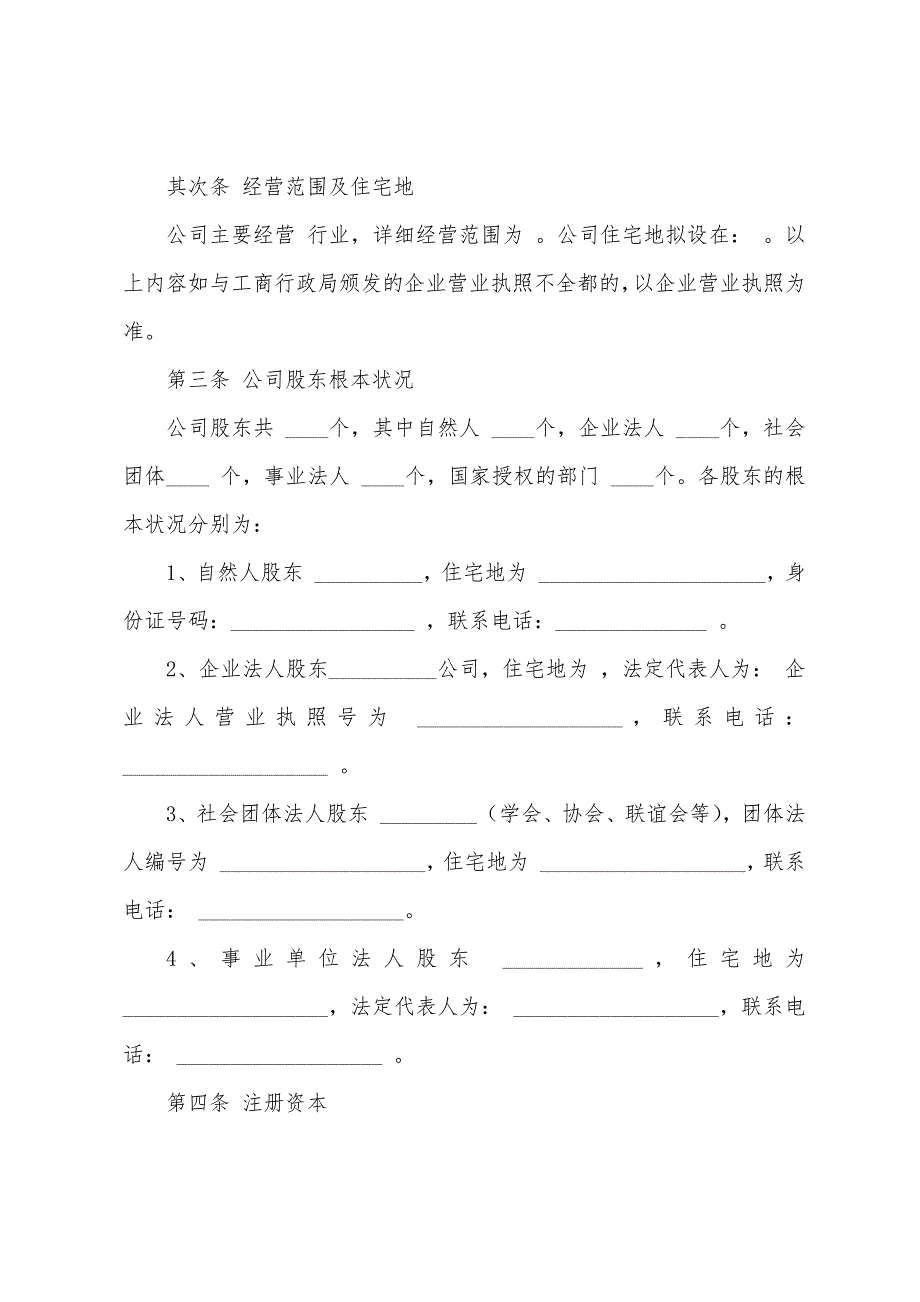 其次条 经营范围及住宅地
公司主要经营 行业，详细经营范围为 。公司住宅地拟设在： 。以
上内容如与工商行政局颁发的企业营业执照不全都的，以企业营业执照为
准。
第三条 公司股东根本状况
公司股东共 ____个，其中自然人 ____个，企业法人 ____个，社会
团体____ 个，事业法人 ____个，国家授权的部门 ____个。各股东的根
本状况分别为：
1、自然人股东 __________，住宅地为 _____________________，身
份证号码：_________________ ，联系电话：______________ 。
2、企业法人股东__________公司，住宅地为 ，法定代表人为： 企
业法人营业执照号为 ___________________，联系电话：
___________________ 。
3、社会团体法人股东 _________（学会、协会、联谊会等），团体法
人编号为 ___________________，住宅地为 ___________________，联系
电话： ___________________。
4、事业单位法人股东 _____________，住宅地为
___________________，法定代表人为： ___________________，联系电
话： ___________________ 。
第四条 注册资本